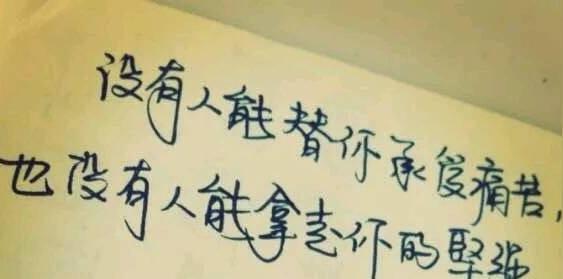 没有人能替你承受痛苦，
也没有人能拿走你的坚强